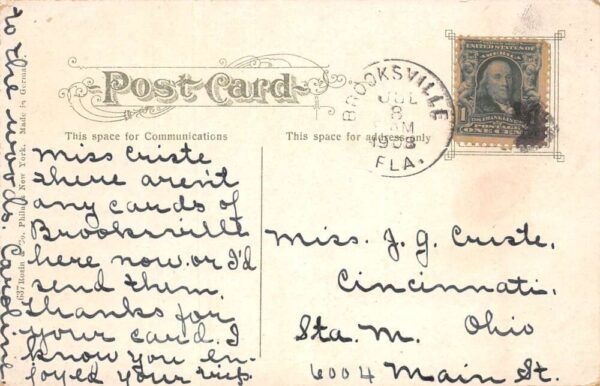 Post Card
This space for Communications
This space for address only
BROOKSVILLE
JUL
8
AM
1908
FLA.
UNITED STATES OF
AMERICA
ONE CENT
Miss Criste
there aren't
any cards of
Brooksville
here now or I'd
send them.
Thanks for
your card. I
know you en-
joyed your
to the woods. Caroline
Miss. J. G. Criste.
Cincinnati.
Sta. M. Ohio
6004 Main St.
637 Rosin & Co. Phila. New York. Made in German